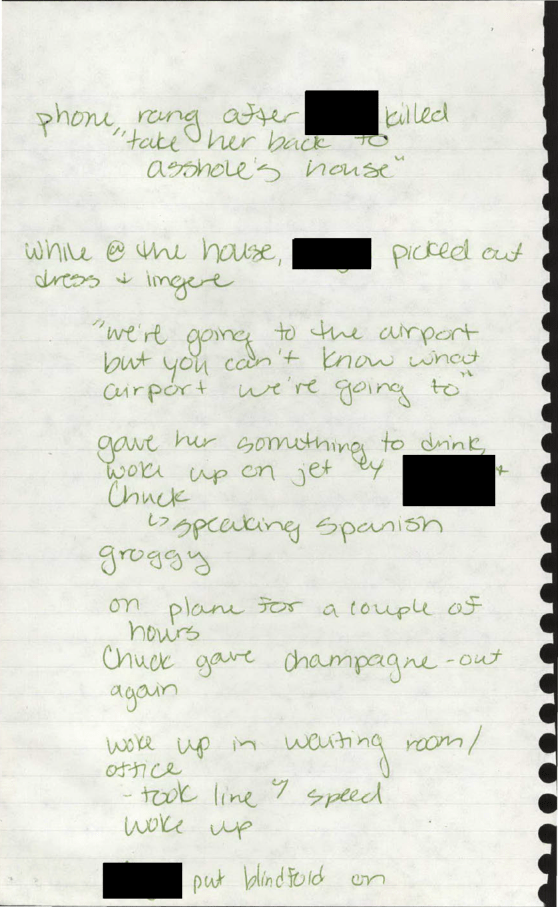 phone rang after killed
"take her back to
asshole's house"
while @ the house, picked out
dress + lingere
"we're going to the airport
but you can't know what
airport we're going to"
gave her something to drink
woke up on jet w/ +
Chuck
↳ speaking Spanish
groggy
on plane for a couple of
hours
Chuck gave champagne - out
again
woke up in waiting room/
office
- took line of speed
woke up
put blindfold on